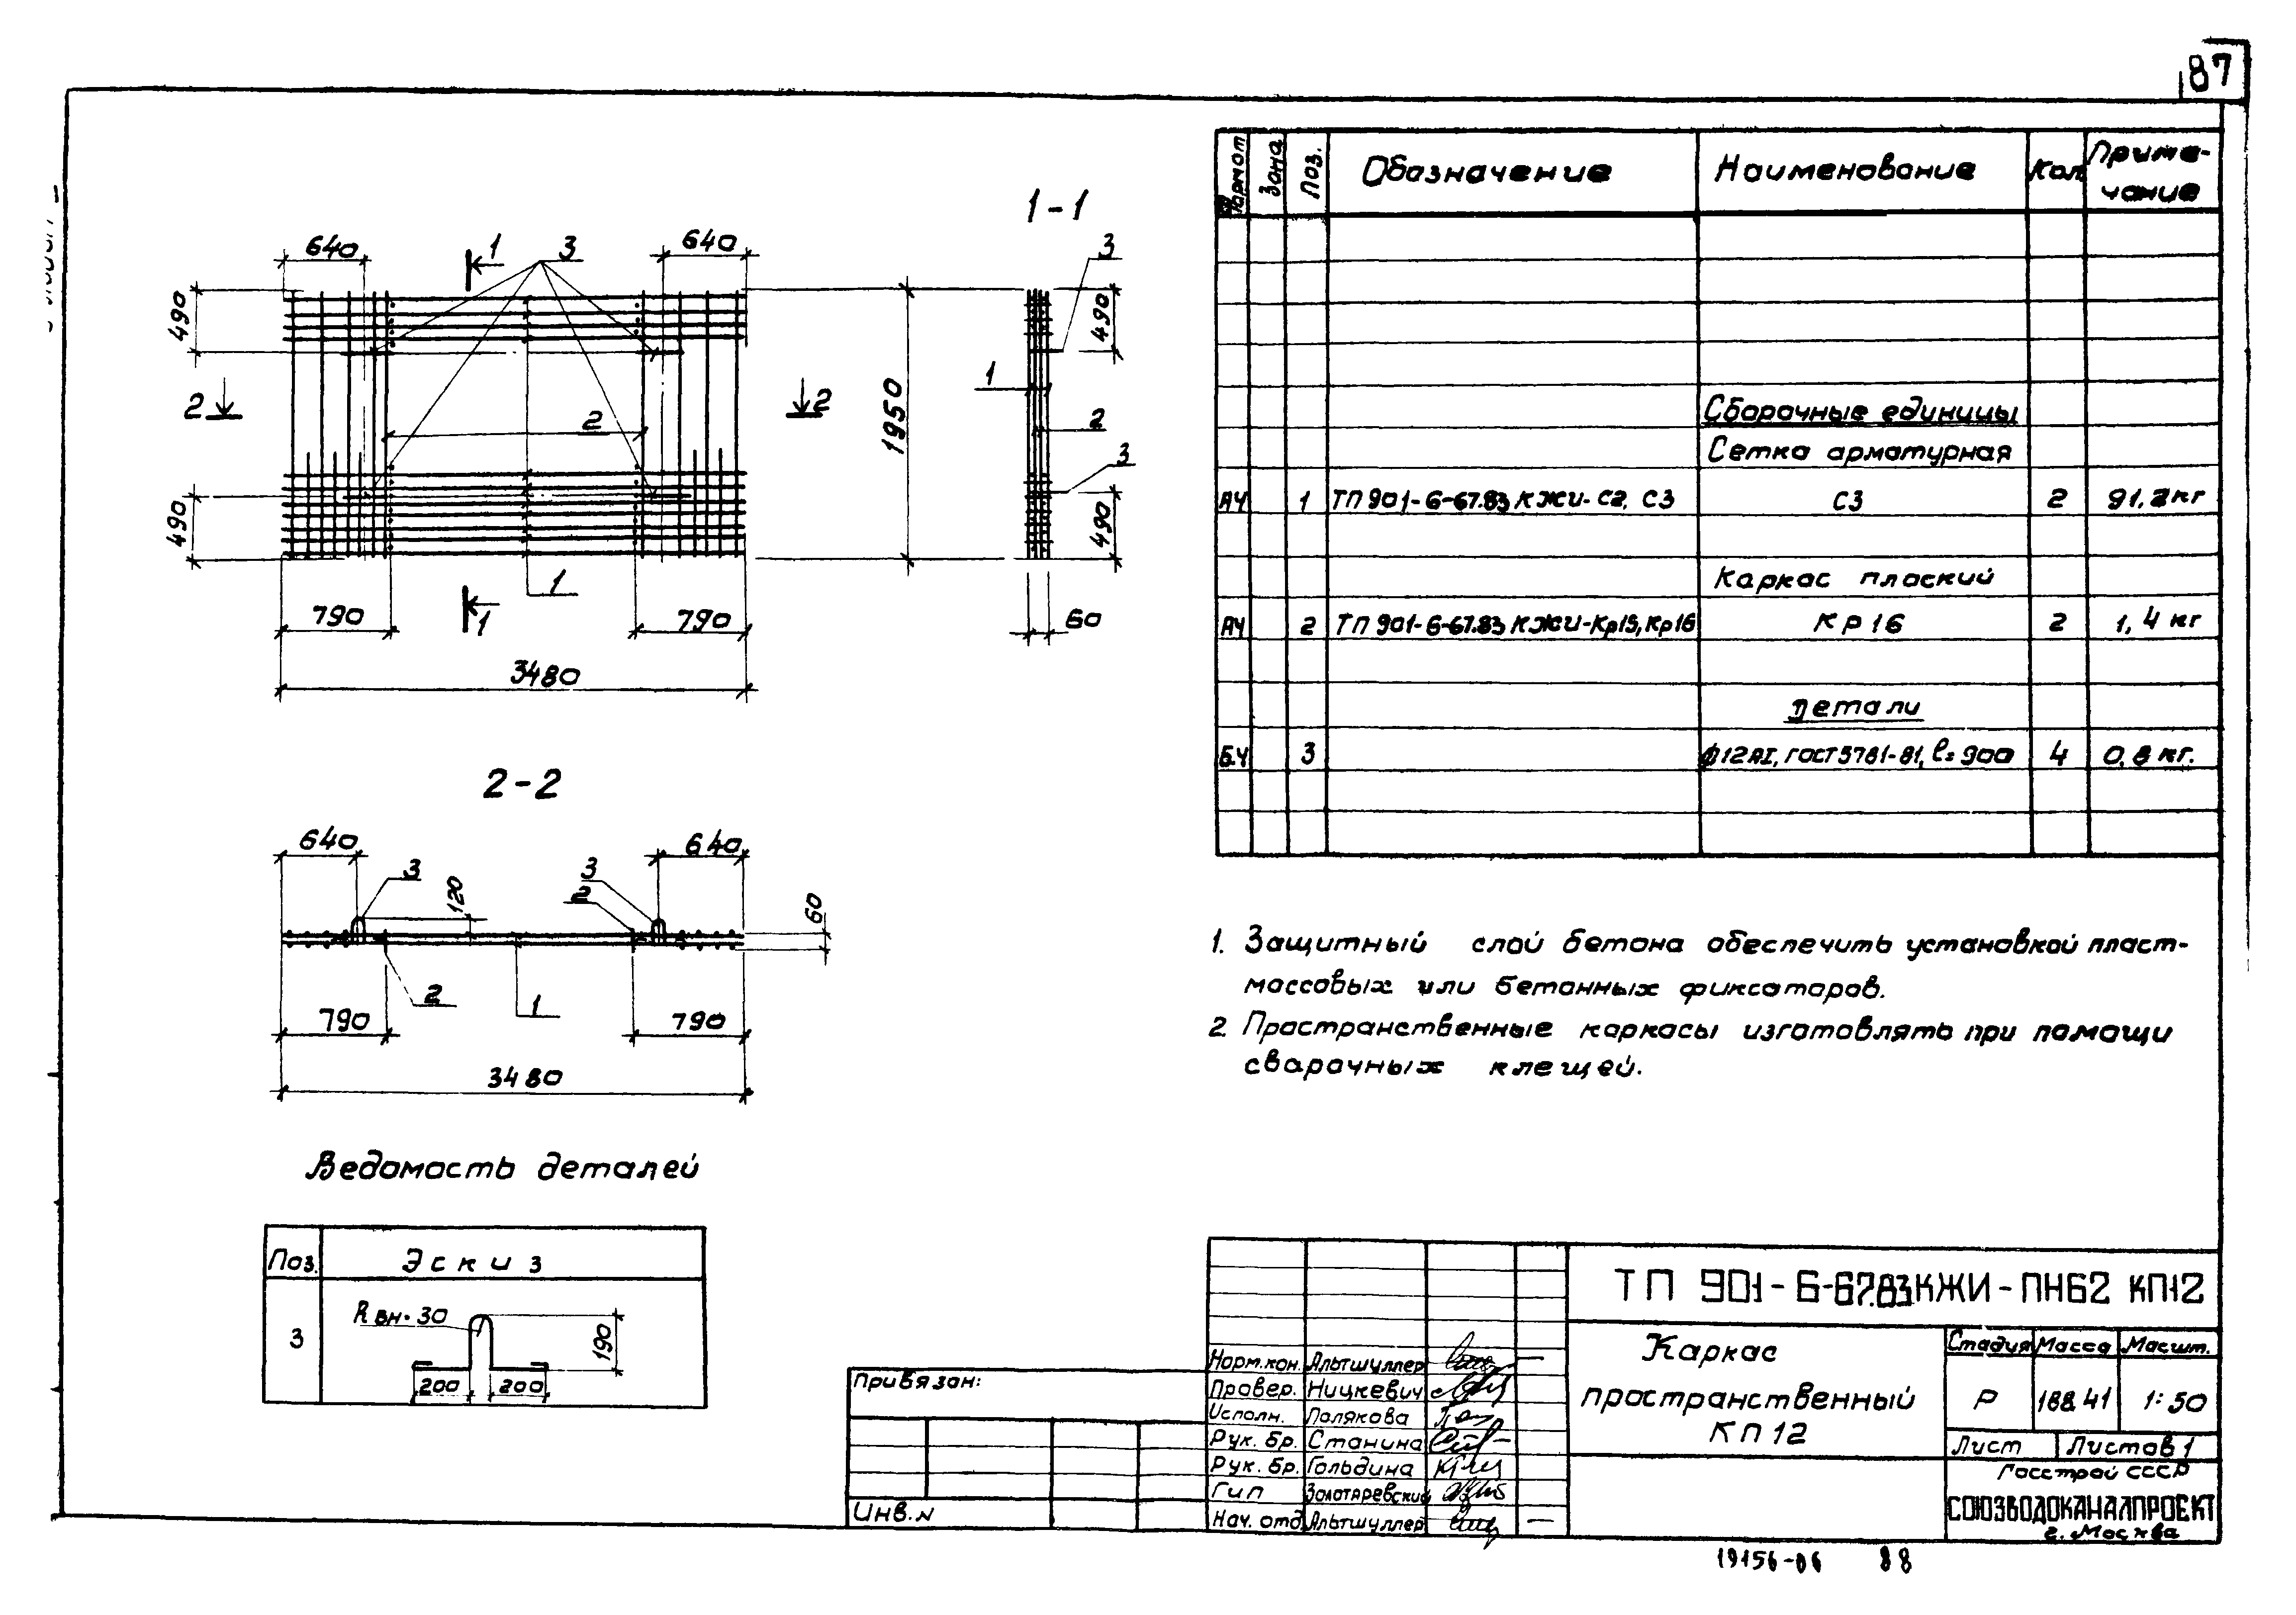 87
1-1
640
1
3
640
490
2
2
2
1950
490
1
790
1
790
3480
3
490
1
2
3
490
60
2-2
640
3
120
3
2
640
60
2
1
790
790
3480
Ведомость деталей
Поз. Эскиз
3
R вн.30
190
200 200
Формат Зона Поз. Обозначение Наименование Кол. Приме-
чание
Сборочные единицы
Сетка арматурная
А4 1 ТП 901-6-67.83 КЖИ-С2, С3 С3 2 91,2кг
Каркас плоский
А4 2 ТП 901-6-67.83 КЖИ-Кр15, Кр16 КР16 2 1,4 кг
Детали
Б.Ч 3 ф12АI, ГОСТ5781-81, l=900 4 0,8 кг.
1. Защитный слой бетона обеспечить установкой пласт-
массовых или бетонных фиксаторов.
2. Пространственные каркасы изготовлять при помощи
сварочных клещей.
Привязан:
Инв.N
Норм.кон. Альтшуллер
Провер. Ницкевич
Исполн. Полякова
Рук. бр. Станина
Рук. бр. Гольдина
Гип Золотаревский
Нач. отд Альтшуллер
ТП 901-6-67.83КЖИ-ПН62 КП12
Каркас
пространственный
КП12
Стадия Масса Масшт.
Р 188.41 1:50
Лист Листов 1
Госстрой СССР
СОЮЗВОДОКАНАЛПРОЕКТ
г. Москва
19156-06 88